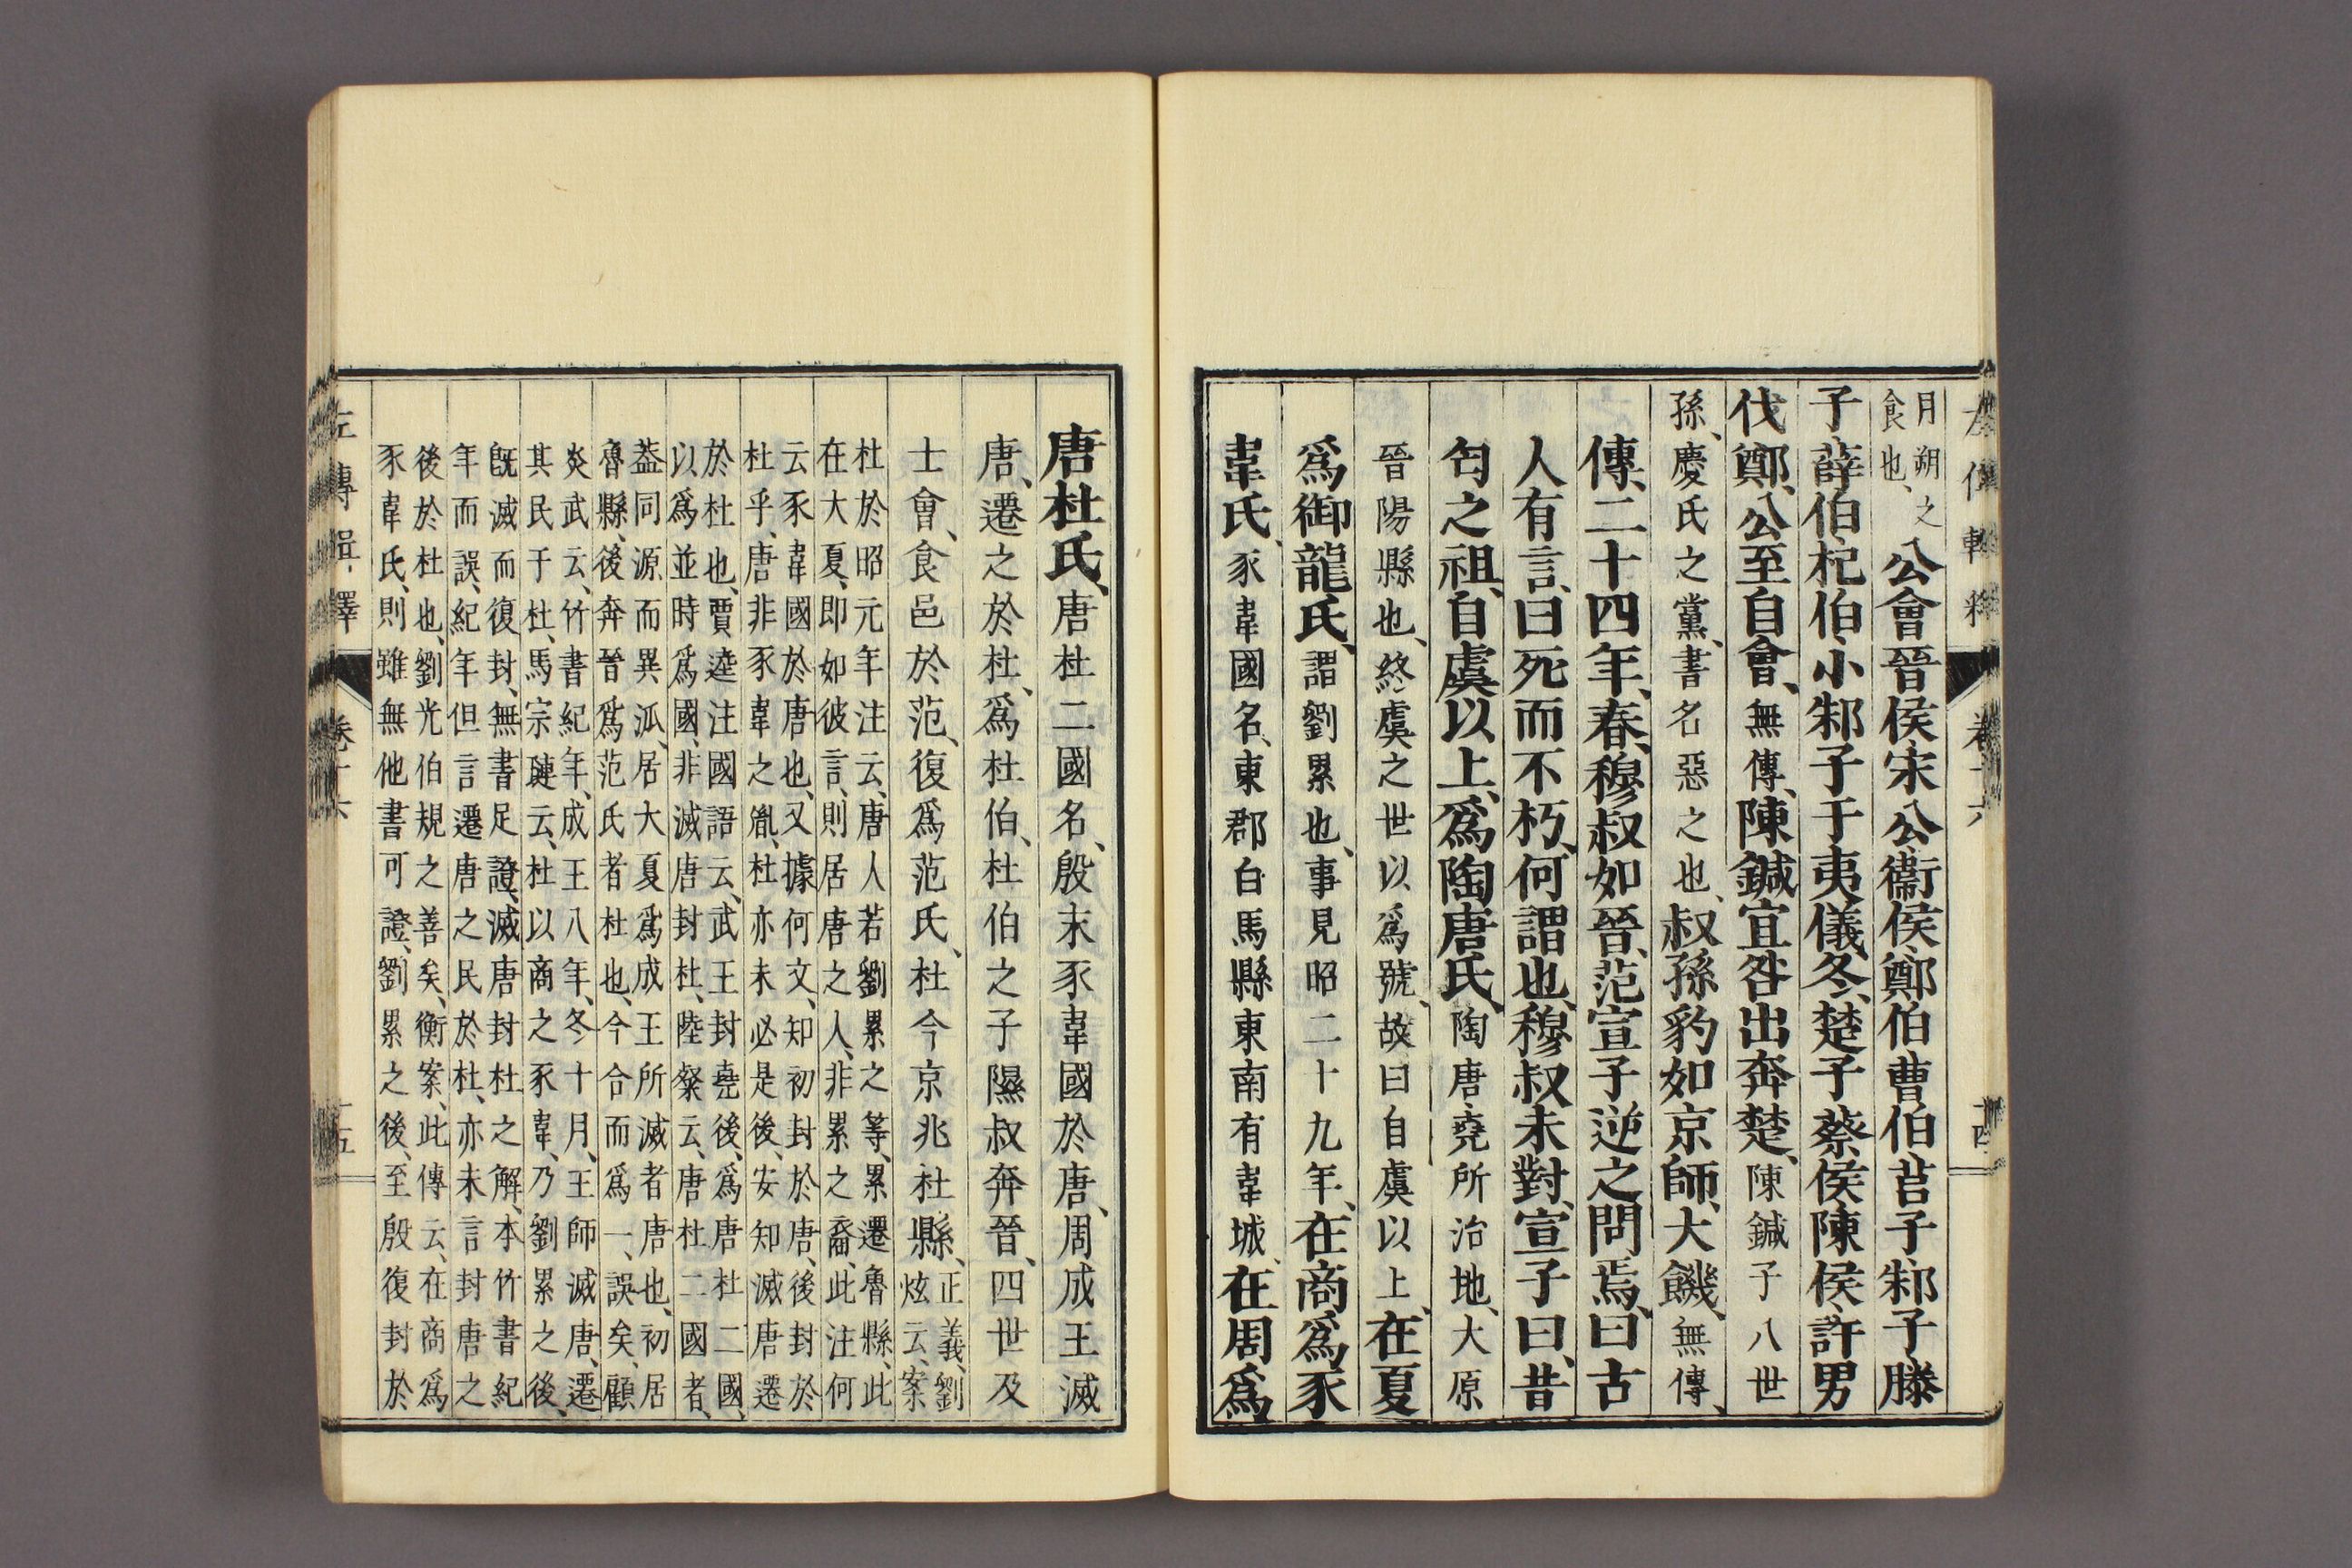 月朔之
食也、公會晉侯宋公衞侯鄭伯曹伯莒子邾子滕
子薛伯杞伯小邾子于夷儀、冬、楚子蔡侯陳侯許男
伐鄭、公至自會、無傳、陳鍼宜咎出奔楚、陳鍼子八世
孫、慶氏之黨、書名惡之也、叔孫豹如京師、大饑、無傳、
傳、二十四年、春、穆叔如晉、范宣子逆之問焉、曰古
人有言、曰死而不朽、何謂也、穆叔未對、宣子曰、昔
匄之祖、自虞以上、爲陶唐氏、陶唐堯所治地、大原
晉陽縣也、終虞之世以爲號、故曰自虞以上、在夏
爲御龍氏、謂劉累也、事見昭二十九年、在商爲豕
韋氏、豕韋國名、東郡白馬縣東南有韋城、在周爲
左傳輯釋 卷十六 十四
唐杜氏、唐杜二國名、殷末豕韋國於唐、周成王滅
唐、遷之於杜、爲杜伯、杜伯之子隰叔奔晉、四世及
士會、食邑於范、復爲范氏、杜今京兆杜縣、正義、劉
炫云、案
杜於昭元年注云、唐人若劉累之等、累遷魯縣、此
在大夏、即如彼言、則居唐之人、非累之裔、此注何
云豕韋國於唐也、又據何文、知初封於唐、後封於
杜乎、唐非豕韋之胤、杜亦未必是後、安知滅唐遷
於杜也、賈逵注國語云、武王封堯後、爲唐杜二國、
以爲並時爲國、非滅唐封杜、陸粲云、唐杜二國者、
蓋同源而異派、居大夏爲成王所滅者唐也、初居
魯縣、後奔晉爲范氏者杜也、今合而爲一、誤矣、顧
炎武云、竹書紀年、成王八年、冬十月、王師滅唐、遷
其民于杜、馬宗璉云、杜以商之豕韋、乃劉累之後、
旣滅而復封、無書足證、滅唐封杜之解、本竹書紀
年而誤、紀年但言遷唐之民於杜、亦未言封唐之
後於杜也、劉光伯規之善矣、衡案、此傳云、在商爲
豕韋氏、則雖無他書可證、劉累之後、至殷復封於
左傳輯釋 卷十六 十五